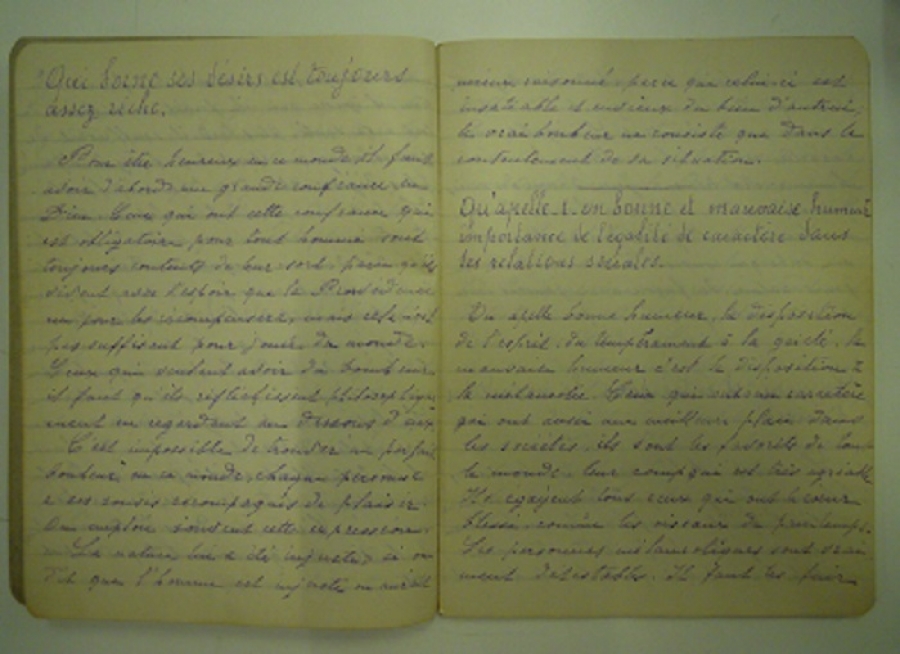 Qui borne ses désirs est toujours
assez riche.
Pour être heureux en ce monde il faut
avoir d'abord une grande confiance en
Dieu. Ceux qui ont cette confiance qui
est obligatoire pour tout homme sont
toujours contents de leur sort, parce qu'ils
vivent avec l'espoir que la Providence
pour les récompenser, mais cela n'est
pas suffisant pour jouir du monde.
Ceux qui veulent avoir du bonheur
il faut qu'ils réfléchissent philosophique
ment en regardant au dessous d'eux
C'est impossible de trouver un parfait
bonheur en ce monde, chaque personne
a ses soucis accompagnés de plaisir.
On emploie souvent cette expression.
La nature a été injuste, si on
dit que l'homme est injuste on aurait
mieux raisonné, parce que celui-ci est
insatiable et envieux du bien d'autrui,
le vrai bonheur ne consiste que dans le
contentement de sa situation.
Qu'apelle-t-on bonne et mauvaise humeur
importance de l'égalité de caractère dans
les relations sociales.
On apelle bonne humeur, la disposition
de l'esprit, du tempérament à la gaieté, la
mauvaise humeur c'est la disposition à
la mélancolie. Ceux qui ont un caractère
gai ont aussi une meilleure place dans
les sociétés, ils sont les favoris de tout
le monde, leur compagnie est très agréable
Ils egayent tous ceux qui ont le cœur
blessé, comme les oiseaux du printemps.
Les personnes mélancoliques sont vrai
ment détestables. Il faut les fuir